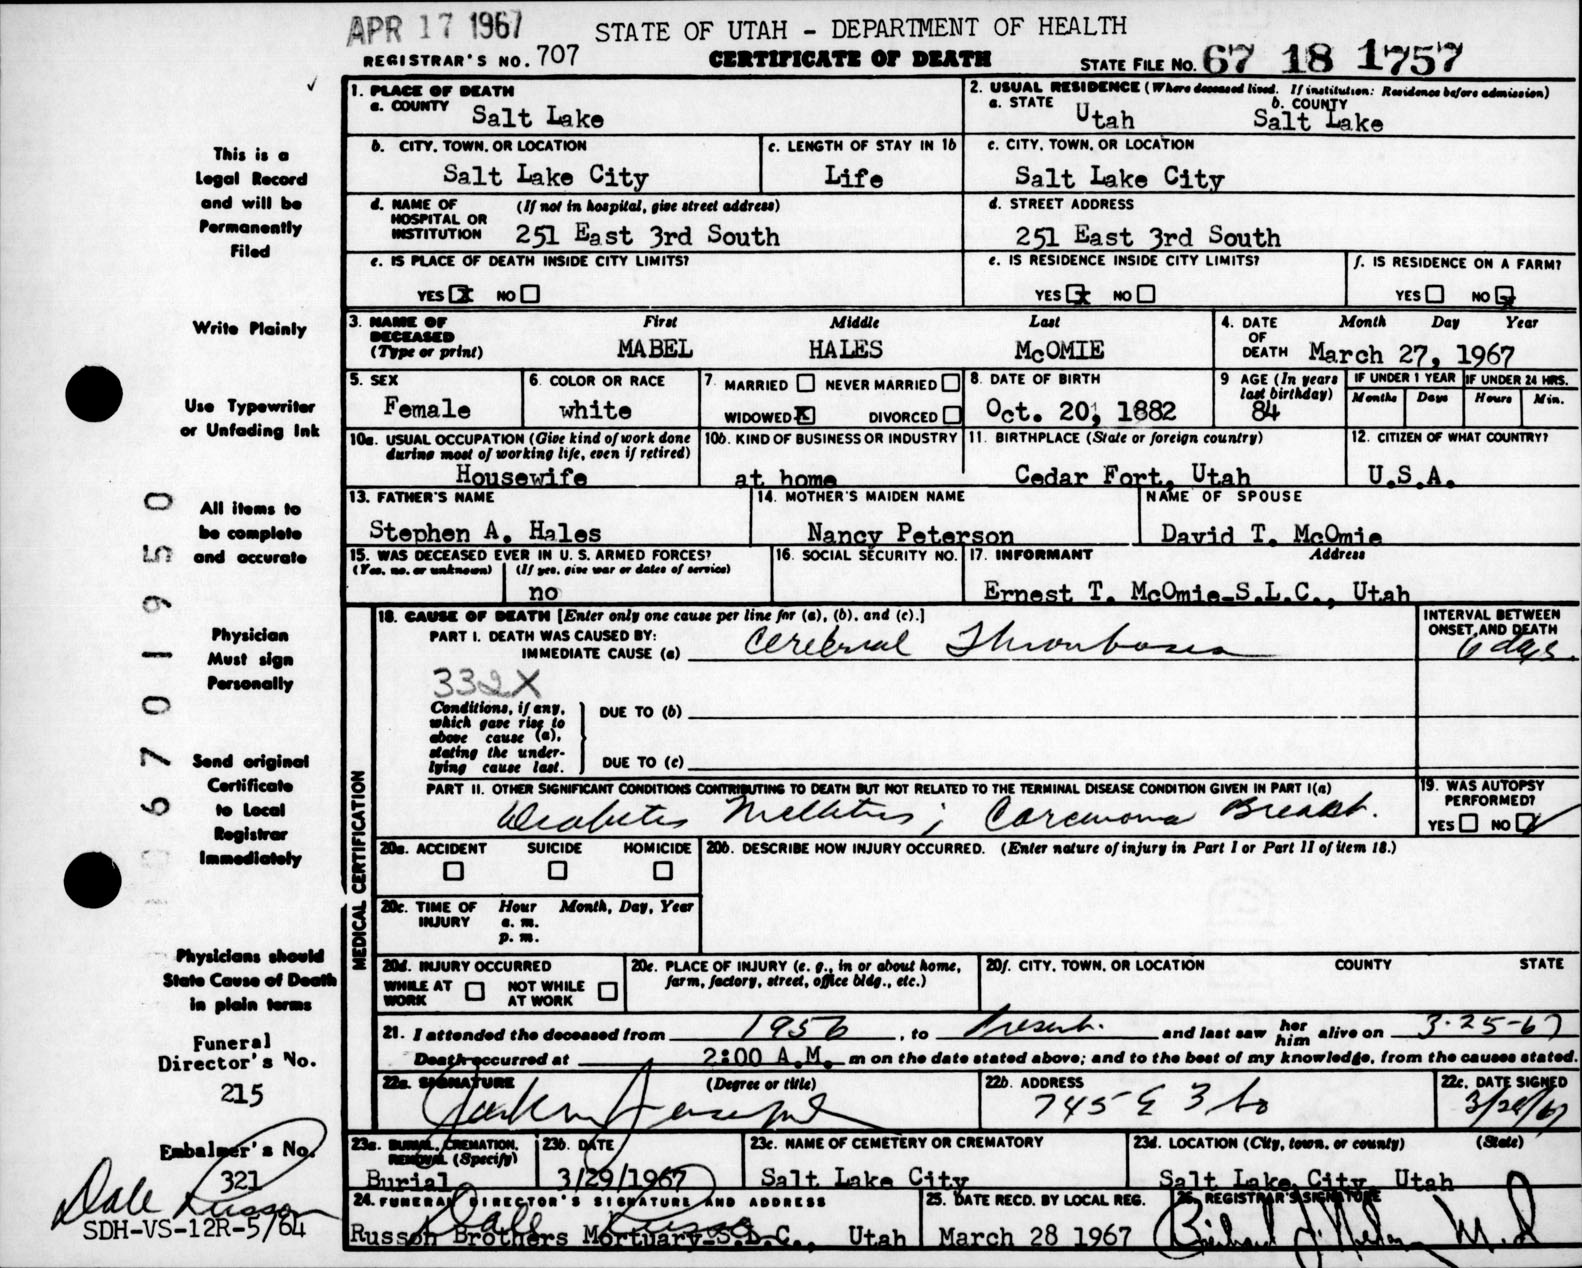 APR 17 1967
STATE OF UTAH - DEPARTMENT OF HEALTH
REGISTRAR'S NO. 707
CERTIFICATE OF DEATH
STATE FILE NO. 67 18 1757
This is a
Legal Record
and will be
Permanently
Filed
Write Plainly
Use Typewriter
or Unfading Ink
All items to
be complete
and accurate
Physician
Must sign
Personally
Send original
Certificate
to Local
Registrar
Immediately
Physicians should
State Cause of Death
in plain terms
Funeral
Director's No.
215
Embalmer's No.
321
Dale Russon
SDH-VS-12R-5/64
6701950
1. PLACE OF DEATH
a. COUNTY Salt Lake
2. USUAL RESIDENCE (Where deceased lived. If institution: Residence before admission)
a. STATE Utah b. COUNTY Salt Lake
b. CITY, TOWN, OR LOCATION Salt Lake City
c. LENGTH OF STAY IN 1b Life
c. CITY, TOWN, OR LOCATION Salt Lake City
d. NAME OF HOSPITAL OR INSTITUTION (If not in hospital, give street address) 251 East 3rd South
d. STREET ADDRESS 251 East 3rd South
e. IS PLACE OF DEATH INSIDE CITY LIMITS?
YES X NO
e. IS RESIDENCE INSIDE CITY LIMITS?
YES X NO
f. IS RESIDENCE ON A FARM?
YES NO X
3. NAME OF DECEASED (Type or print)
First Middle Last
MABEL HALES McOMIE
4. DATE OF DEATH Month Day Year
March 27, 1967
5. SEX Female
6. COLOR OR RACE white
7. MARRIED NEVER MARRIED
WIDOWED X DIVORCED
8. DATE OF BIRTH Oct. 20, 1882
9 AGE (In years last birthday) 84
IF UNDER 1 YEAR Months Days
IF UNDER 24 HRS. Hours Min.
10a. USUAL OCCUPATION (Give kind of work done during most of working life, even if retired) Housewife
10b. KIND OF BUSINESS OR INDUSTRY at home
11. BIRTHPLACE (State or foreign country) Cedar Fort, Utah
12. CITIZEN OF WHAT COUNTRY? U.S.A.
13. FATHER'S NAME Stephen A. Hales
14. MOTHER'S MAIDEN NAME Nancy Peterson
NAME OF SPOUSE David T. McOmie
15. WAS DECEASED EVER IN U. S. ARMED FORCES?
(Yes, no, or unknown) (If yes, give war or dates of service) no
16. SOCIAL SECURITY NO.
17. INFORMANT Address
Ernest T. McOmie-S.L.C., Utah
MEDICAL CERTIFICATION
18. CAUSE OF DEATH [Enter only one cause per line for (a), (b), and (c).]
INTERVAL BETWEEN ONSET AND DEATH
PART I. DEATH WAS CAUSED BY:
IMMEDIATE CAUSE (a) Cerebral Thrombosis 6 days.
332X
Conditions, if any, which gave rise to above cause (a), stating the underlying cause last.
DUE TO (b)
DUE TO (c)
PART II. OTHER SIGNIFICANT CONDITIONS CONTRIBUTING TO DEATH BUT NOT RELATED TO THE TERMINAL DISEASE CONDITION GIVEN IN PART I(a)
Diabetes Mellitus; Carcinoma Breast.
19. WAS AUTOPSY PERFORMED?
YES NO ✓
20a. ACCIDENT SUICIDE HOMICIDE
20b. DESCRIBE HOW INJURY OCCURRED. (Enter nature of injury in Part I or Part II of item 18.)
20c. TIME OF INJURY Hour Month, Day, Year
a. m.
p. m.
20d. INJURY OCCURRED
WHILE AT WORK NOT WHILE AT WORK
20e. PLACE OF INJURY (e. g., in or about home, farm, factory, street, office bldg., etc.)
20f. CITY, TOWN, OR LOCATION COUNTY STATE
21. I attended the deceased from 1956, to Present. and last saw her him alive on 3-25-67
Death occurred at 2:00 A.M. m on the date stated above; and to the best of my knowledge, from the causes stated.
22a. SIGNATURE (Degree or title)
22b. ADDRESS 745 E 3 So
22c. DATE SIGNED 3/28/67
23a. BURIAL, CREMATION, REMOVAL (Specify) Burial
23b. DATE 3/29/1967
23c. NAME OF CEMETERY OR CREMATORY Salt Lake City
23d. LOCATION (City, town, or county) (State) Salt Lake City, Utah
24. FUNERAL DIRECTOR'S SIGNATURE AND ADDRESS
Dale Russon
Russon Brothers Mortuary-S.L.C., Utah
25. DATE RECD. BY LOCAL REG. March 28 1967
26. REGISTRAR'S SIGNATURE
M.D